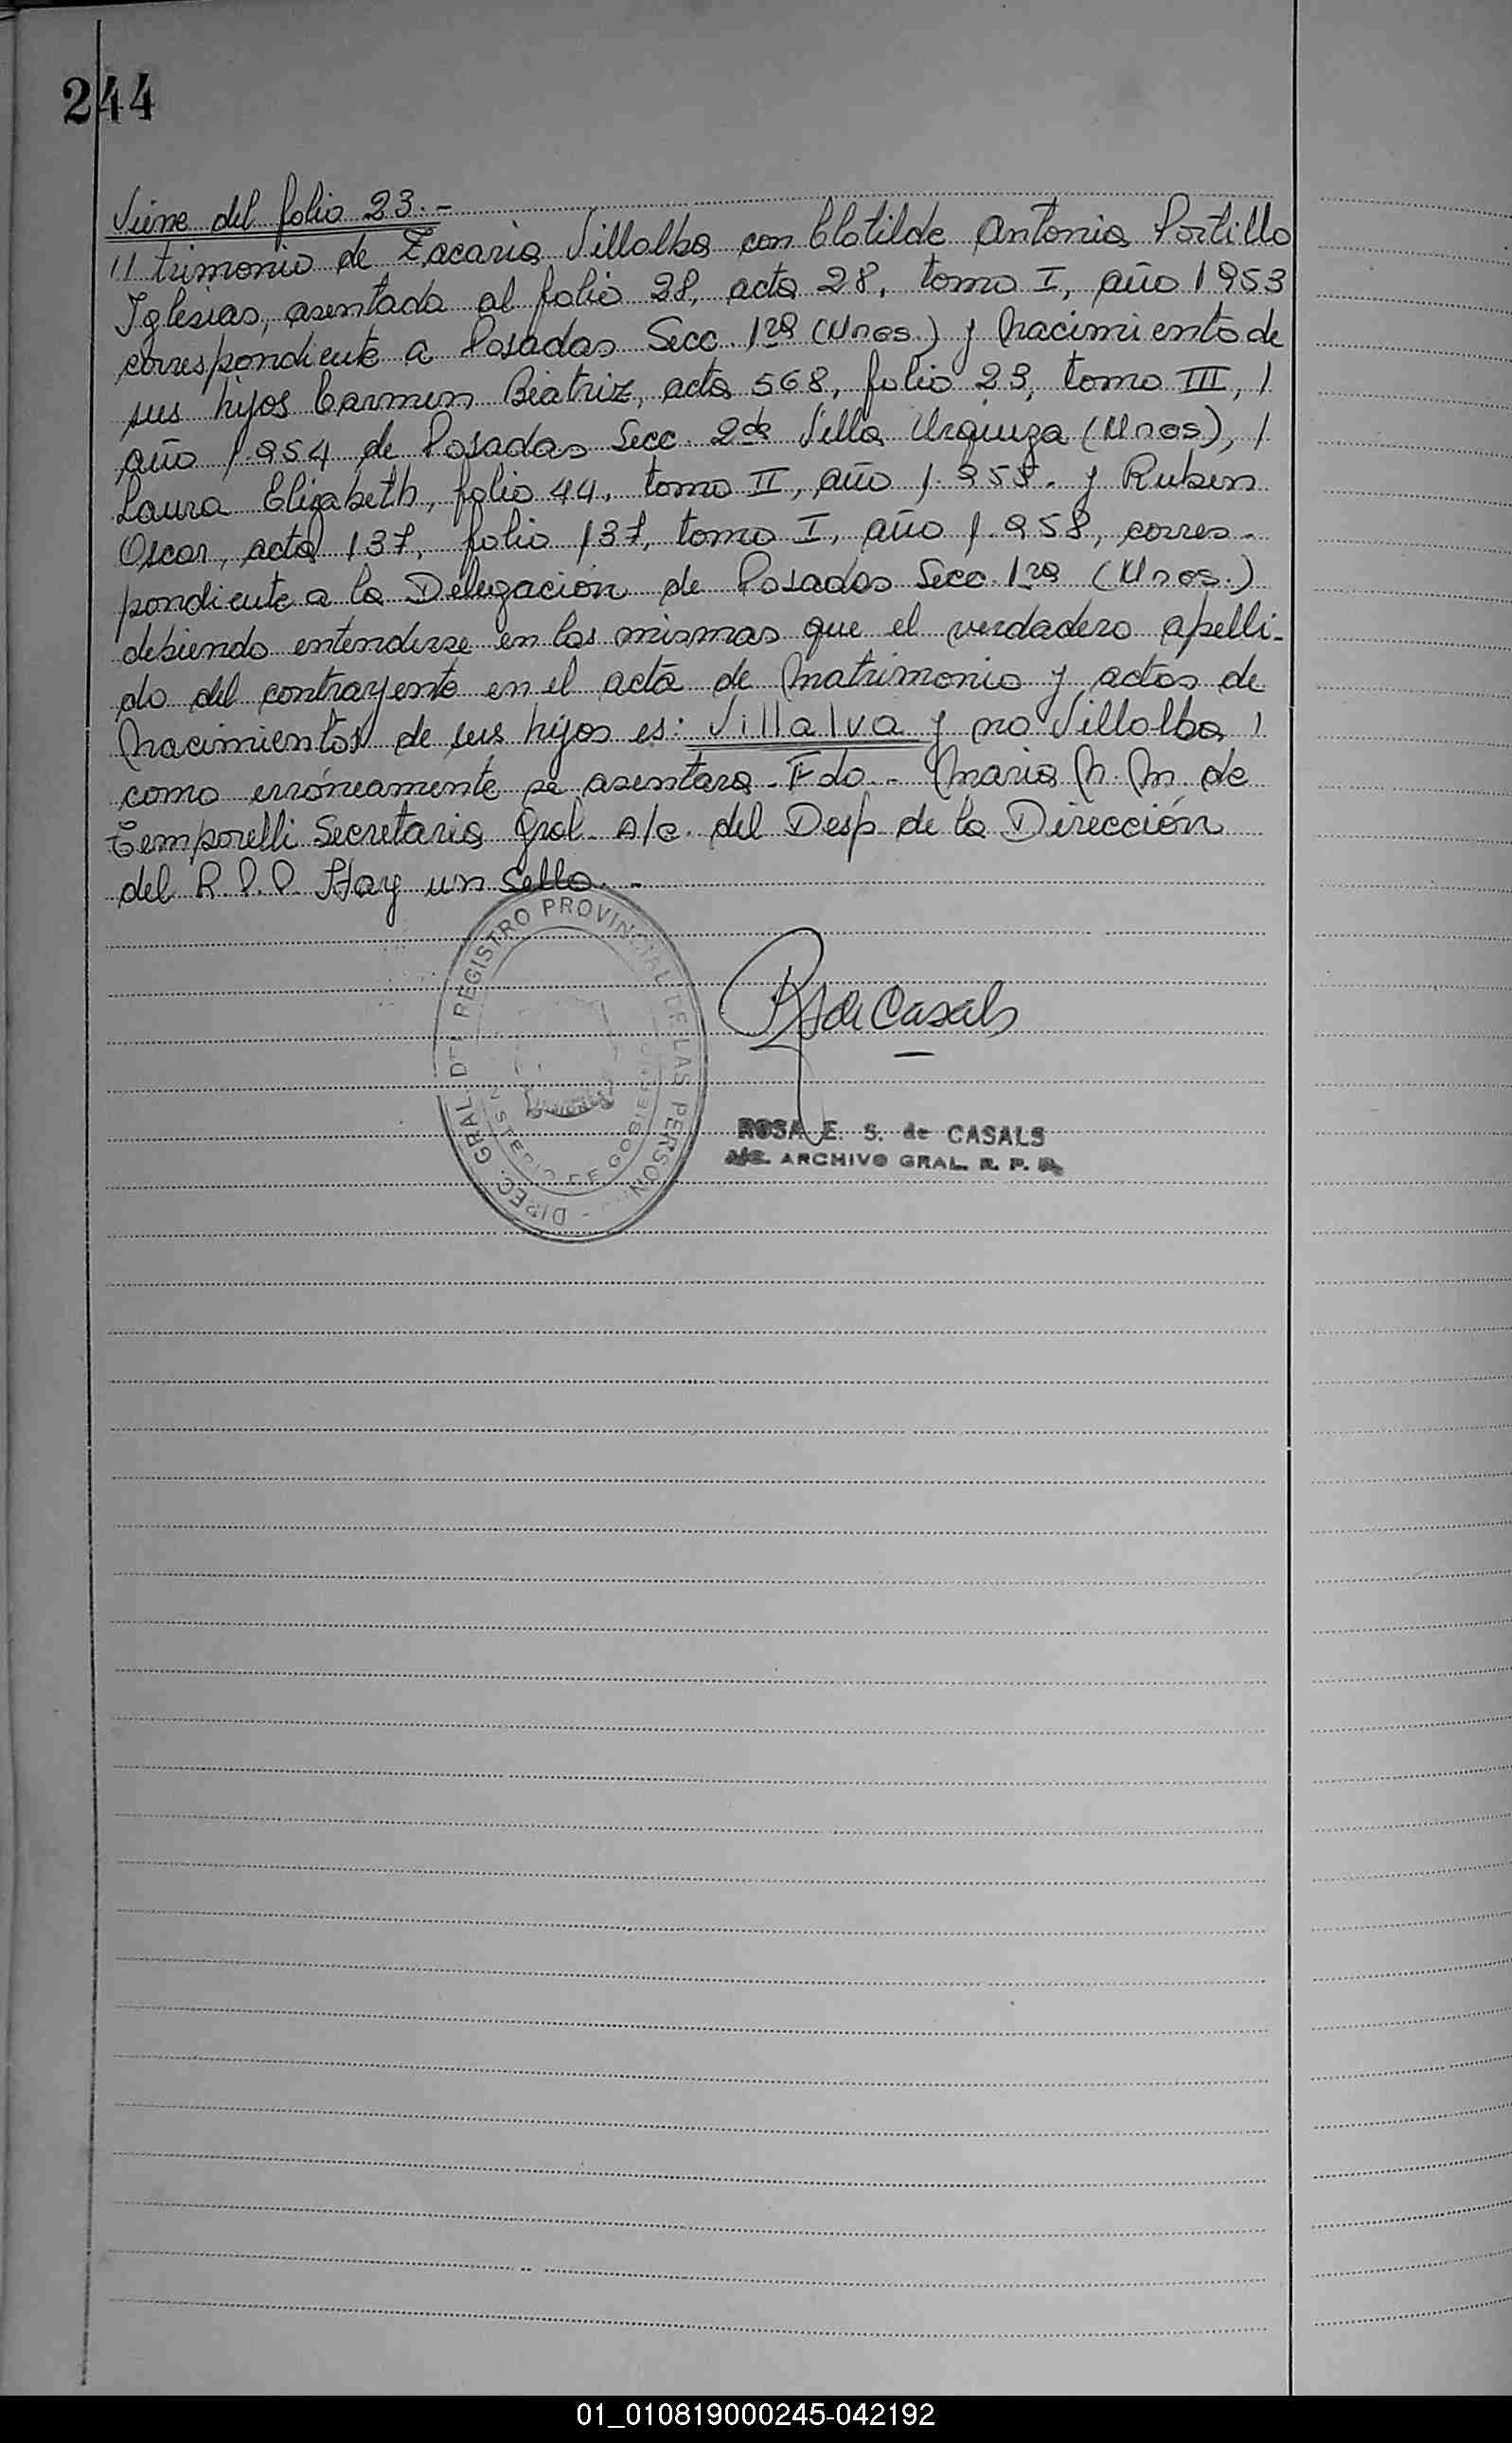 244
Viene del folio 23.-
// trimonio de Zacaria Villalba con Clotilde Antonia Portillo
Iglesias, asentada al folio 28, acta 28, tomo I, año 1953
correspondiente a Posadas Secc. 1ra (Mnes.) y Nacimiento de
sus hijos Carmen Beatriz, acta 568, folio 23, tomo III, /
año 1.954 de Posadas Secc. 2da Villa Urquiza (Mnes), /
Laura Elizabeth, folio 44, tomo II, año y Ruben
Oscar, acta 137, folio 137, tomo I, año 1.958, corres-
pondiente a la Delegación de Posadas Secc. 1ra (Mnes.)
debiendo entenderse en las mismas que el verdadero apelli-
do del contrayente en el acta de Matrimonio y actas de
Nacimientos de sus hijos es: Villalva y no Villalba /
como erróneamente se asentara - Fdo.- Maria N. M. de
Temporelli Secretaria Gral. A/c. del Desp de la Dirección
del R.P.P. Hay un Sello.-
DIREC. GRAL. DEL REGISTRO PROVINCIAL DE LAS PERSONAS
R S de Casals
ROSA E. S. de CASALS
A/C. ARCHIVO GRAL. R. P. P.
01_010819000245-042192